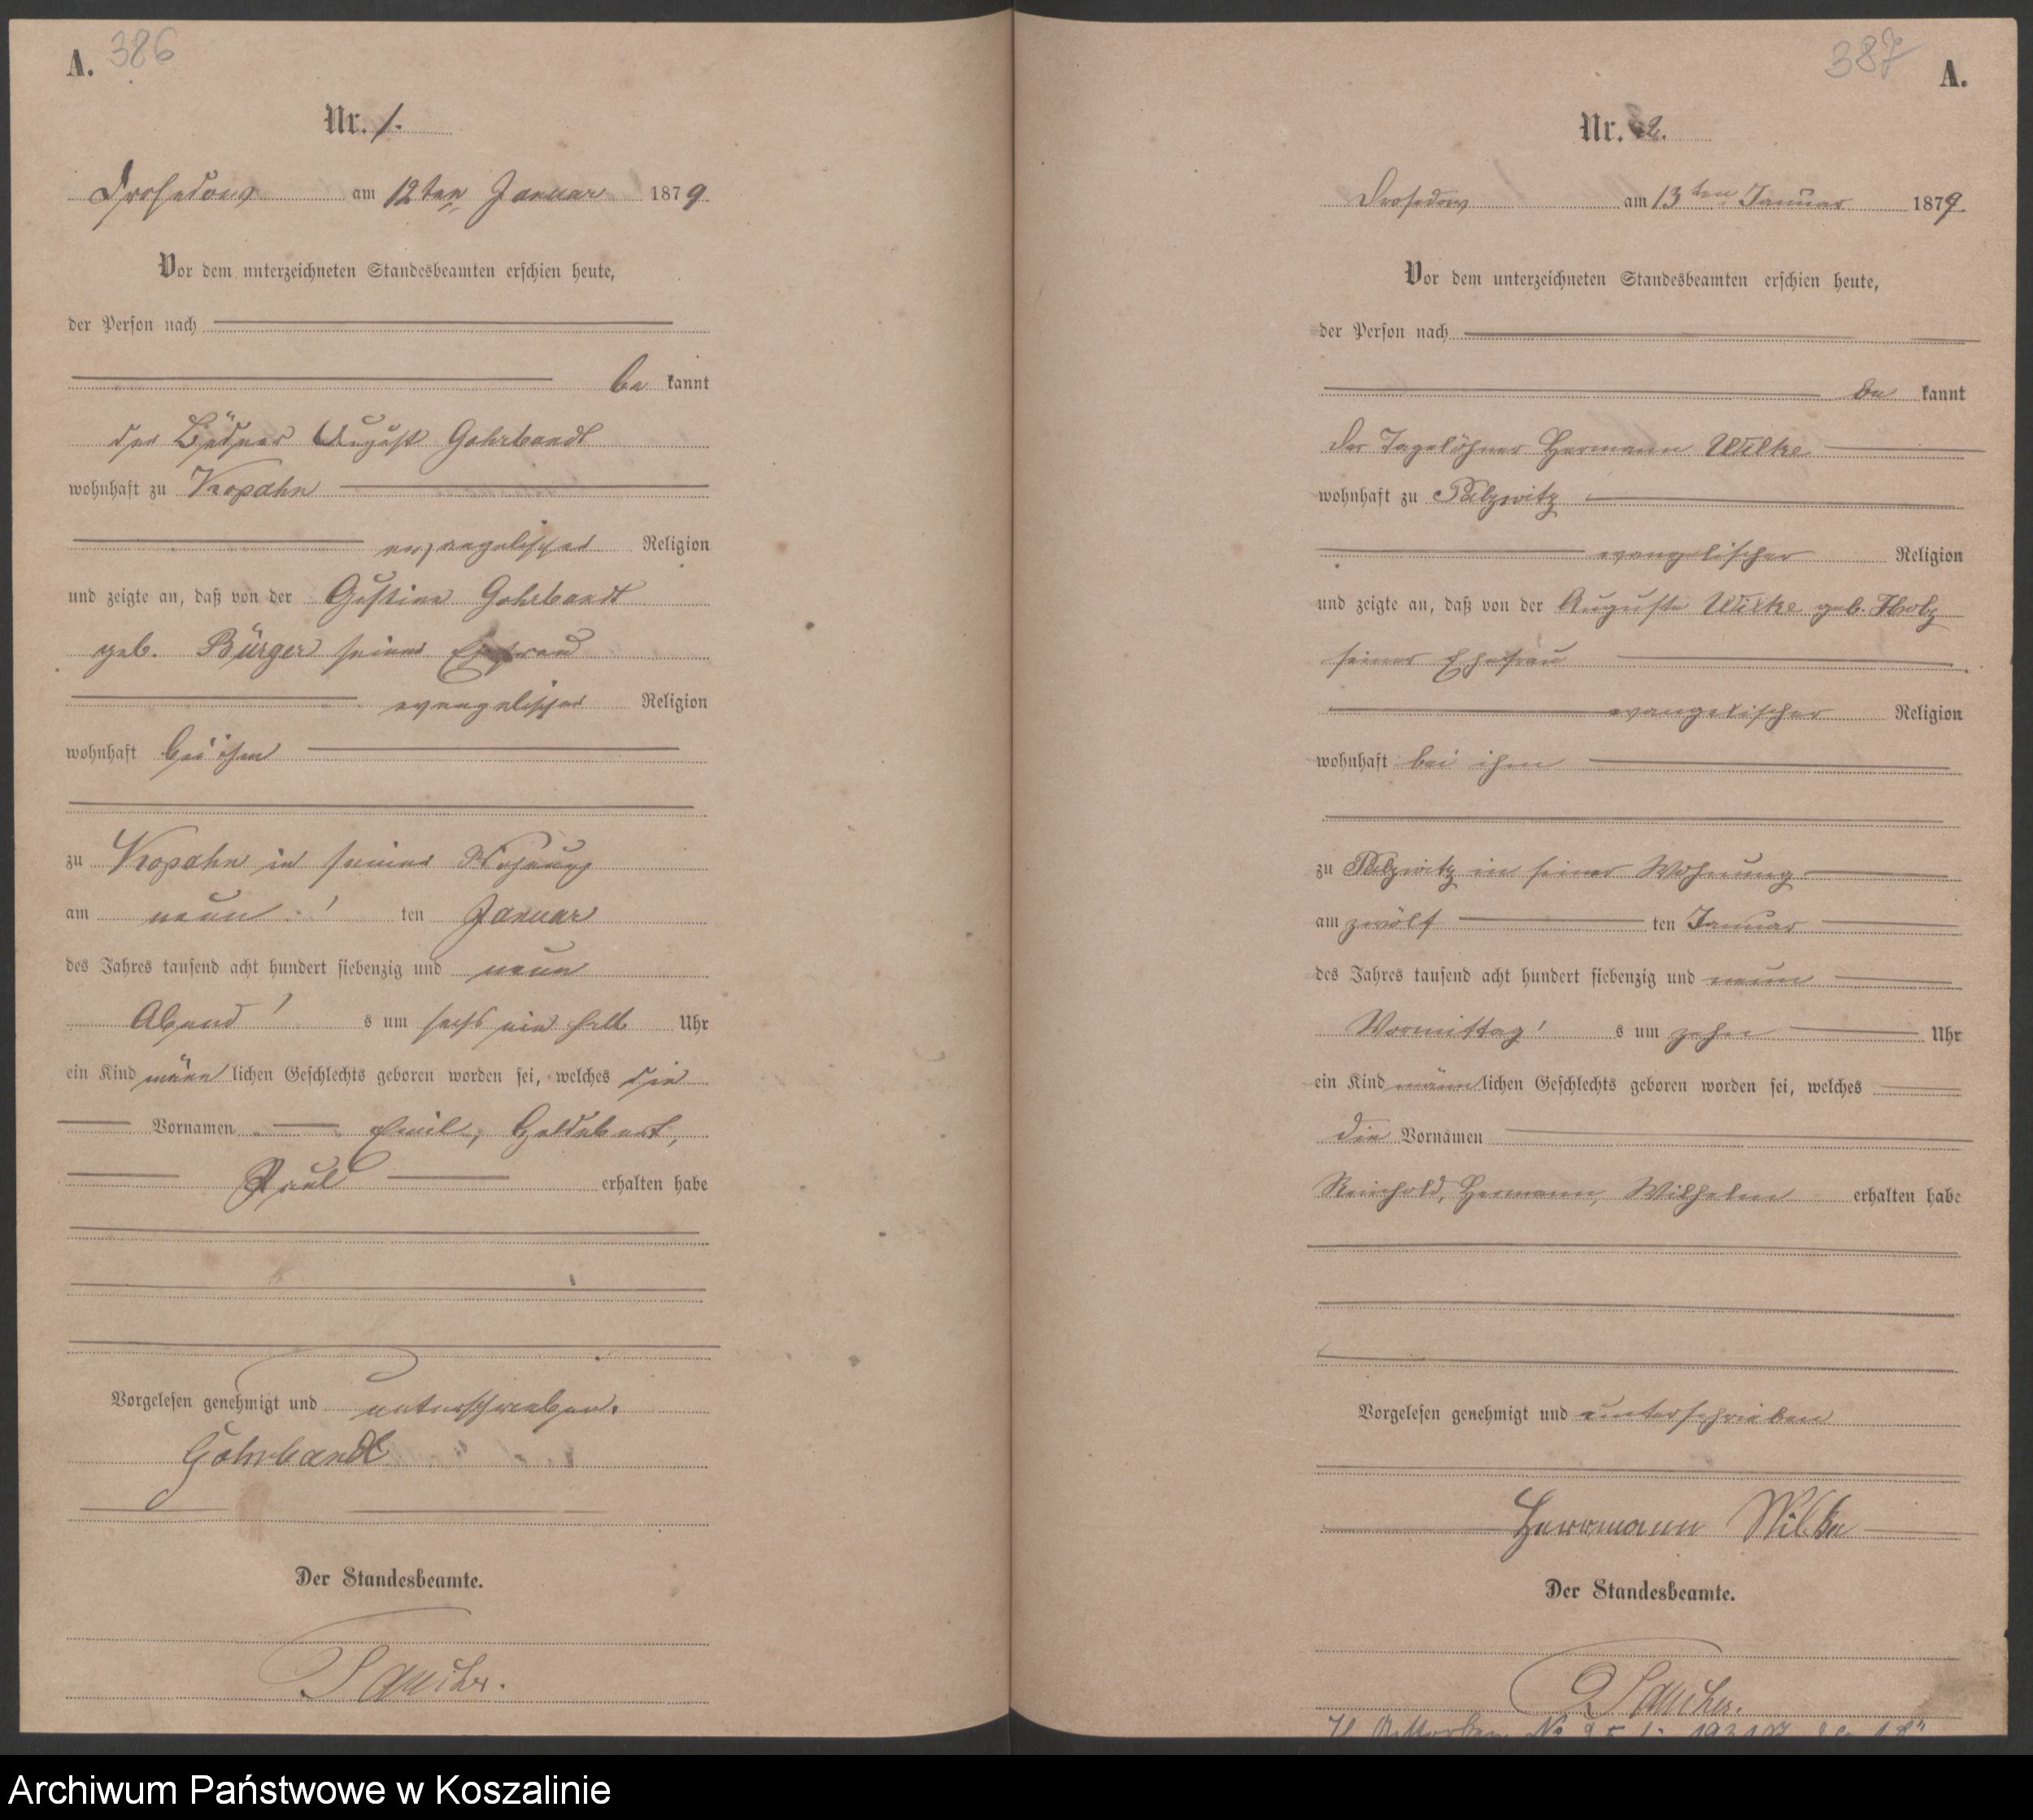 A. 386
Nr. 1.
Drosedow am 12ten Januar 1879.
Vor dem unterzeichneten Standesbeamten erschien heute,
der Person nach
be kannt
der Büdner August Gohrbandt
wohnhaft zu Kopahn
evangelischer Religion
und zeigte an, daß von der Gustine Gohrbandt
geb. Bürger seiner Ehefrau
evangelischer Religion
wohnhaft bei ihm
zu Kopahn in seiner Wohnung
am neun ten Januar
des Jahres tausend acht hundert siebenzig und neun
Abend s um sechs ein halb Uhr
ein Kind männ lichen Geschlechts geboren worden sei, welches die
Vornamen Emil,
Paul erhalten habe
Vorgelesen genehmigt und unterschrieben.
Gohrbandt
Der Standesbeamte.
387 A.
Nr. 2.
Drosedow am 13ten Januar 1879.
Vor dem unterzeichneten Standesbeamten erschien heute,
der Person nach
be kannt
der Tagelöhner Hermann Wilke
wohnhaft zu Palzwitz
evangelischer Religion
und zeigte an, daß von der Auguste Wilke geb. Holz
seiner Ehefrau
evangelischer Religion
wohnhaft bei ihm
zu Palzwitz in seiner Wohnung
am zwölf ten Januar
des Jahres tausend acht hundert siebenzig und neun
Vormittag s um zehn Uhr
ein Kind männ lichen Geschlechts geboren worden sei, welches
die Vornamen
Reinhold, Hermann, Wilhelm erhalten habe
Vorgelesen genehmigt und unterschrieben
Herrmann Wilke
Der Standesbeamte.
Archiwum Państwowe w Koszalinie